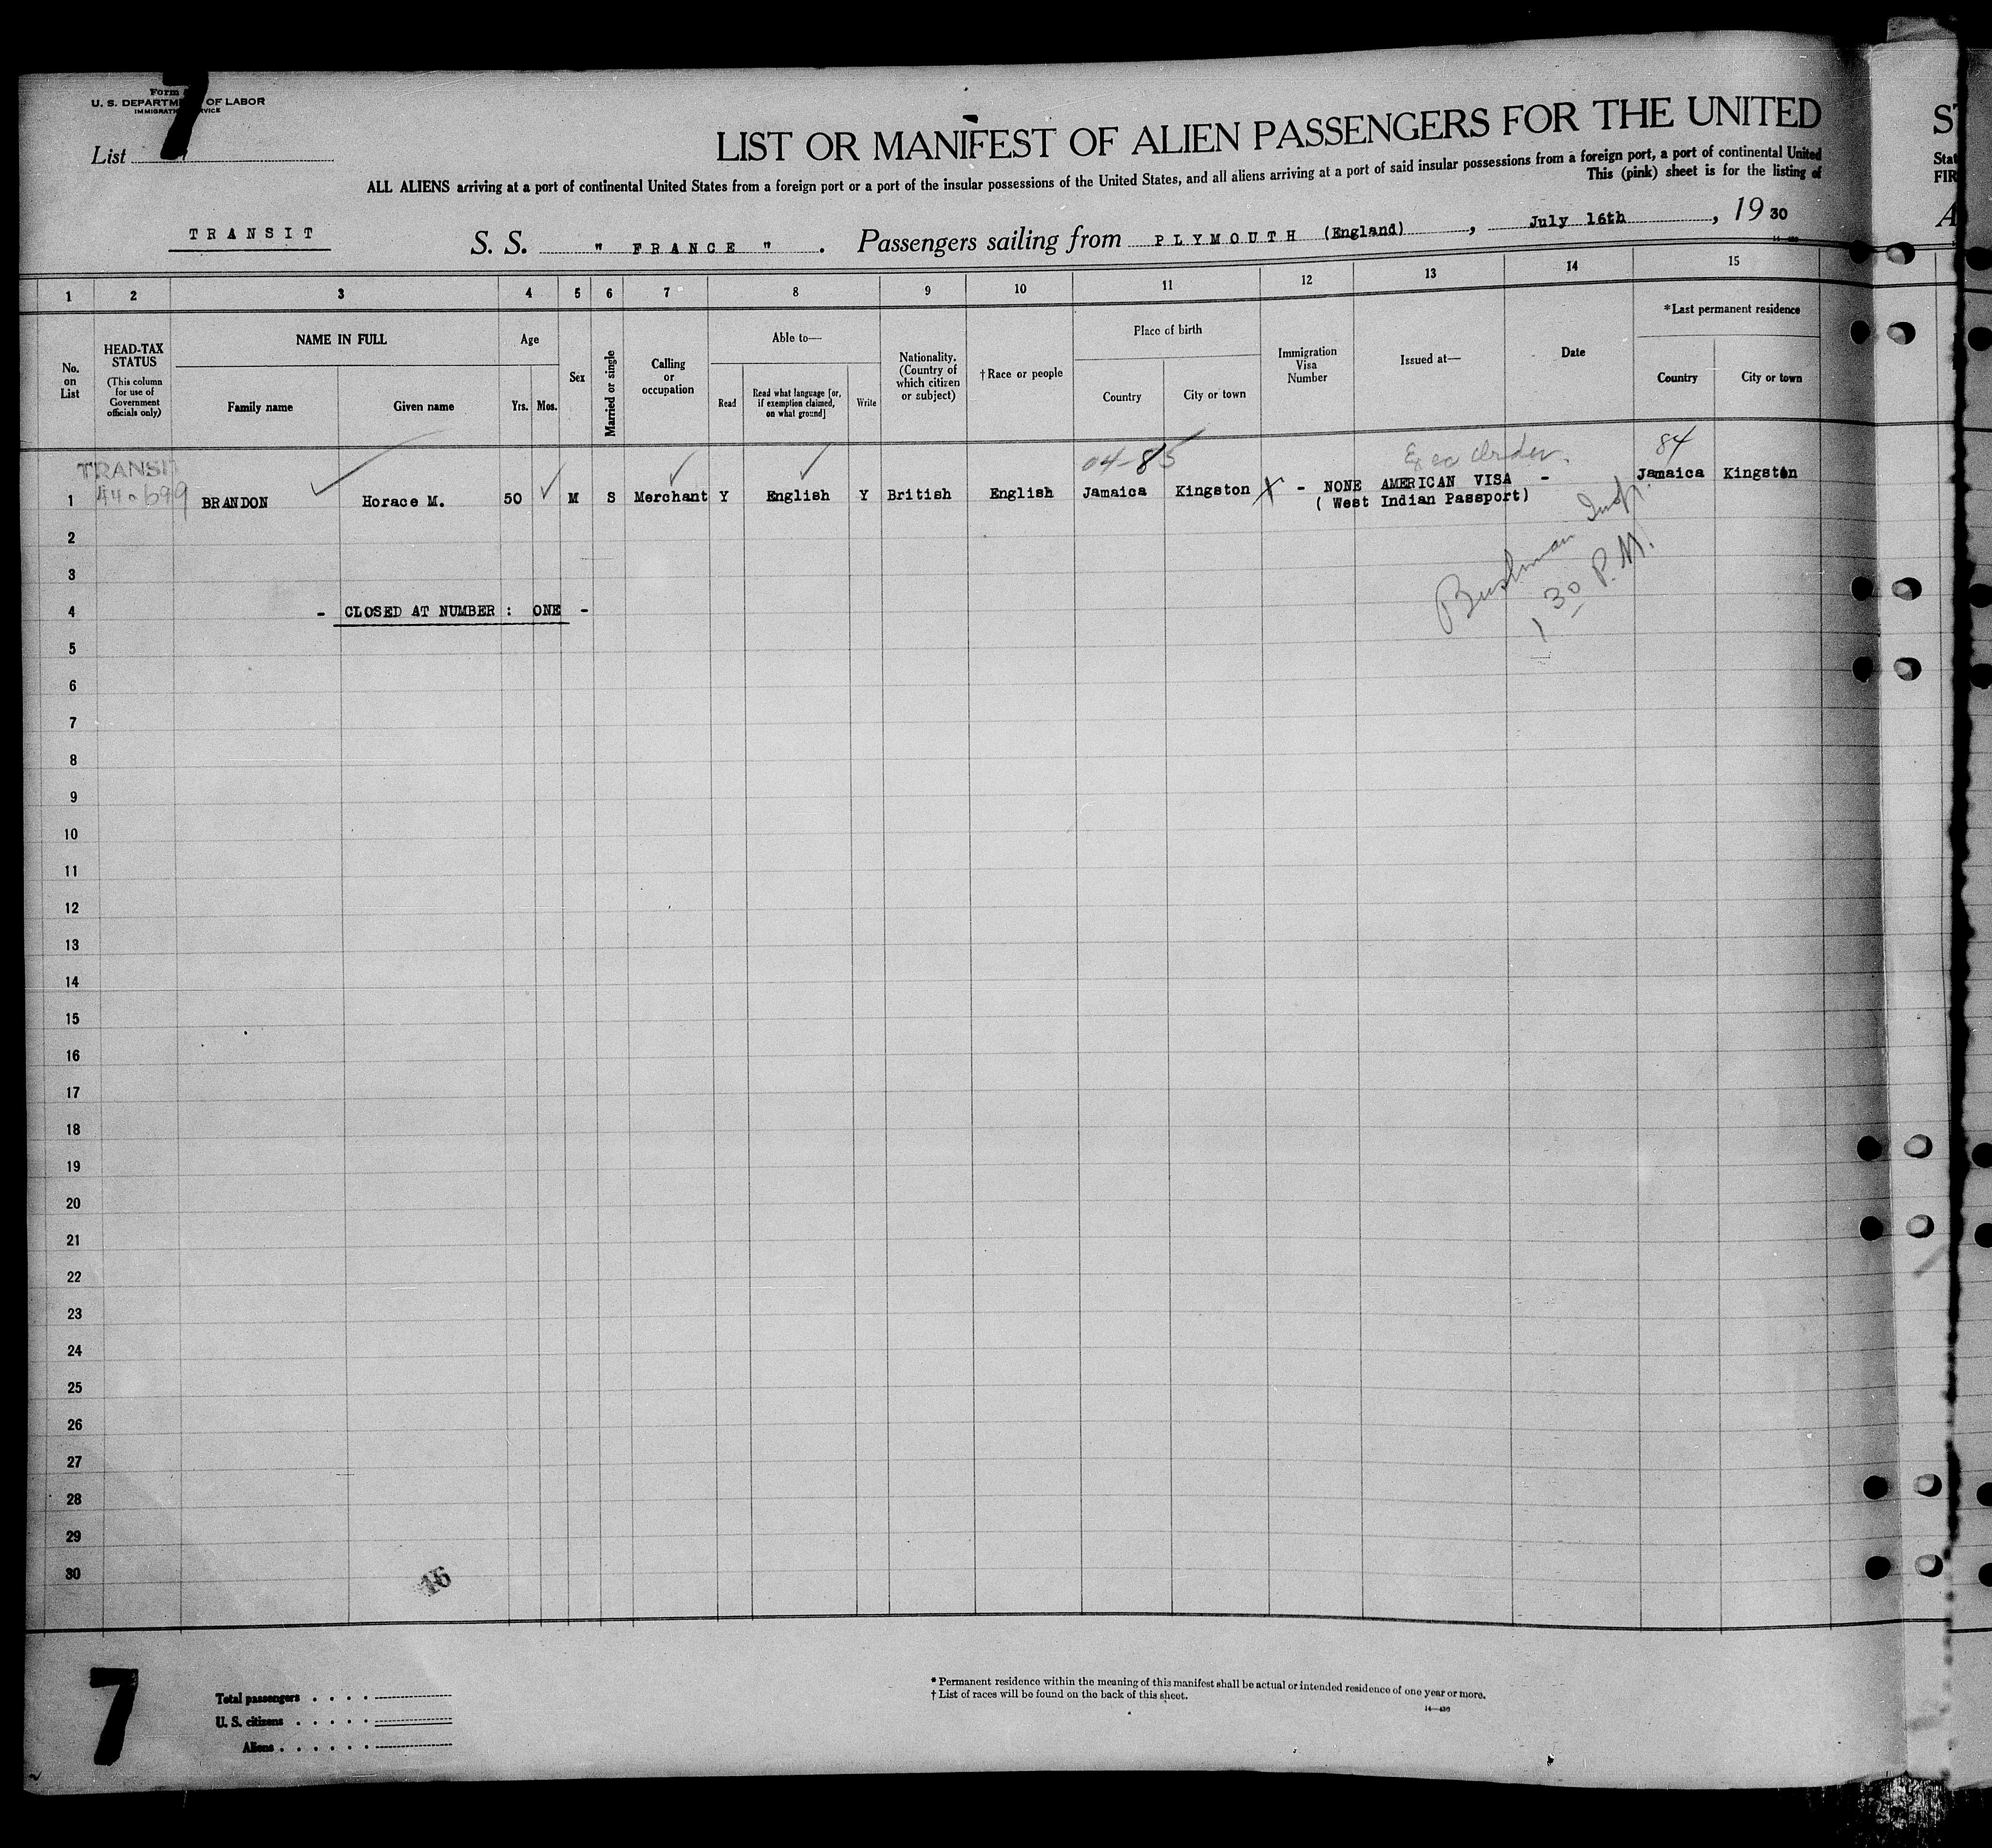 Form
U. S. DEPARTMENT OF LABOR
IMMIGRATION SERVICE
7
List
LIST OR MANIFEST OF ALIEN PASSENGERS FOR THE UNITED
ALL ALIENS arriving at a port of continental United States from a foreign port or a port of the insular possessions of the United States, and all aliens arriving at a port of said insular possessions from a foreign port, a port of continental United
This (pink) sheet is for the listing of
ST
Stat
FIR
A
TRANSIT
S. S. " FRANCE " . Passengers sailing from PLYMOUTH (England) , July 16th , 19 30
1 2 3 4 5 6 7 8 9 10 11 12 13 14 15
No. on List
HEAD-TAX STATUS (This column for use of Government officials only)
NAME IN FULL
Family name Given name
Age
Yrs. Mos.
Sex
Married or single
Calling or occupation
Able to—
Read Read what language [or, if exemption claimed, on what ground] Write
Nationality. (Country of which citizen or subject)
†Race or people
Place of birth
Country City or town
Immigration Visa Number
Issued at—
Date
*Last permanent residence
Country City or town
TRANSIT 04-85 Exec Order. 84
44-699
1 BRANDON Horace M. 50 M S Merchant Y English Y British English Jamaica Kingston X - NONE AMERICAN VISA - Jamaica Kingston
( West Indian Passport)
Bushman Insp.
1 30 P.M.
2
3
4 - CLOSED AT NUMBER : ONE -
5
6
7
8
9
10
11
12
13
14
15
16
17
18
19
20
21
22
23
24
25
26
27
28
29
30
16
7
Total passengers . . . .
U. S. citizens . . . . .
Aliens . . . . . .
* Permanent residence within the meaning of this manifest shall be actual or intended residence of one year or more.
† List of races will be found on the back of this sheet.
14—430